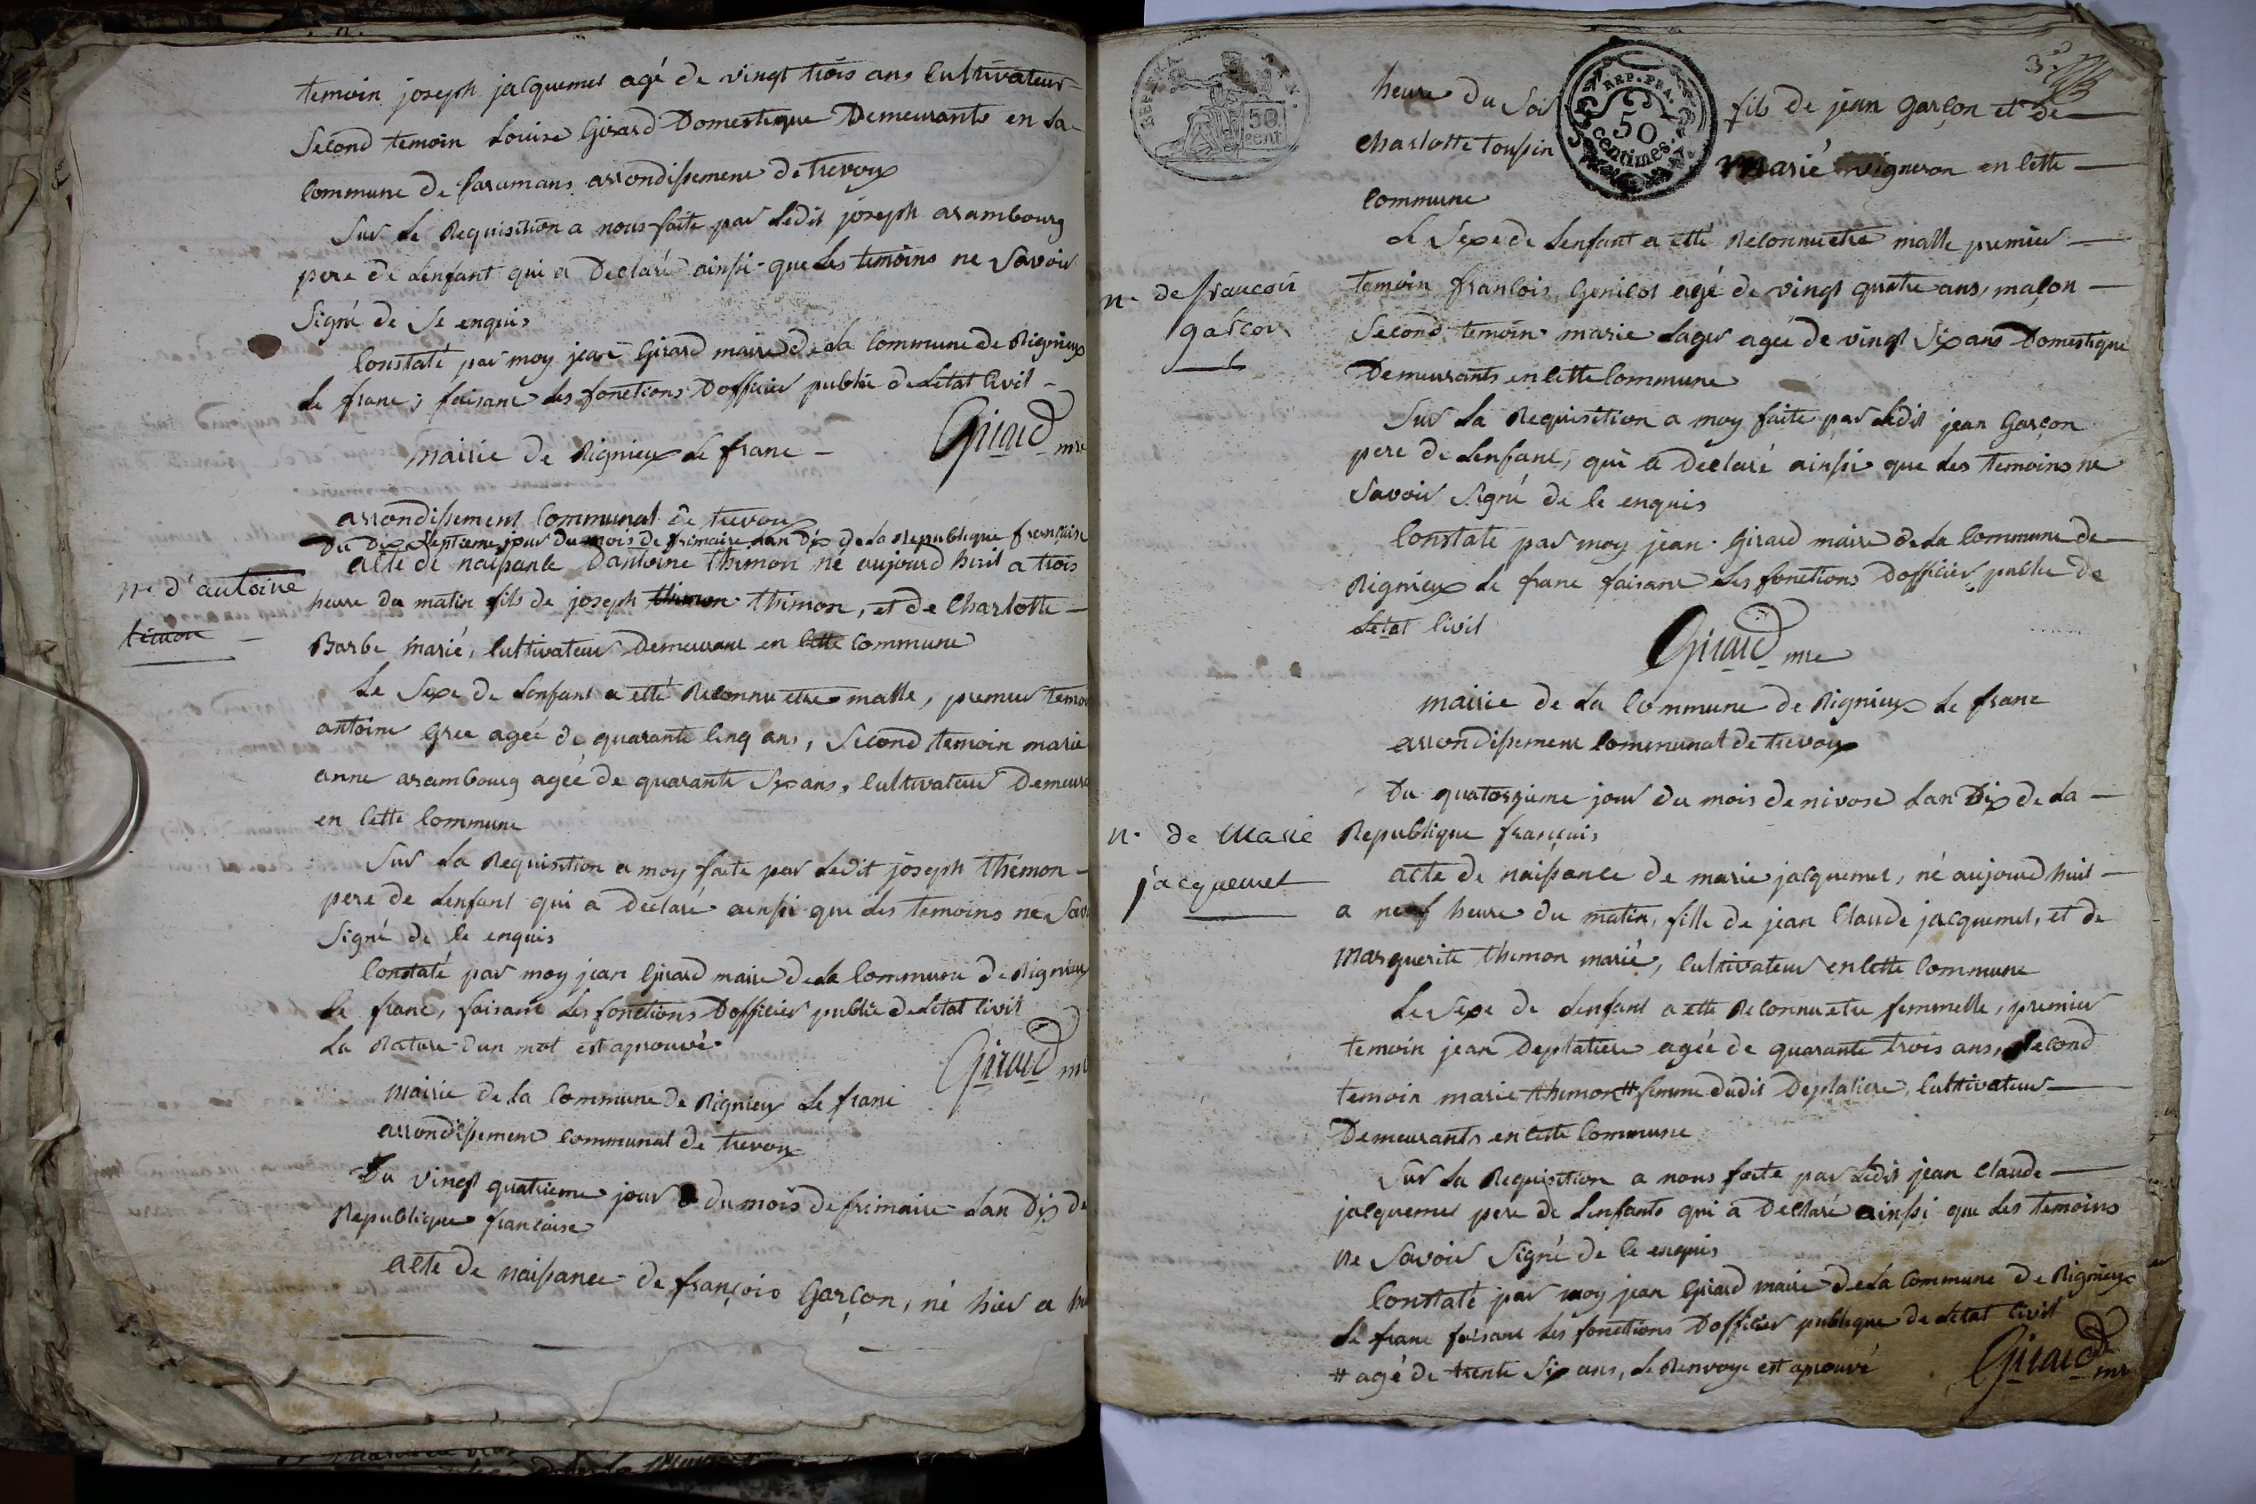 temoin joseph jacquemet agé de vingt trois ans Cultivateur
Second temoin Louise Girard Domestique Demeurants en La
Commune de faramans arrondissement de trevoux
Sur Le Requisition a nous faite par Ledit joseph arambourg
pere de Lenfant qui a Declaré ainssi que Les temoins ne Savoir
Signé de Se enquis
Constaté par moy jean Girard maire de La Commune de Rignieux
Le franc, faisant Les fonctions Dofficier public de Letat Civil
Girard mre
mairie de Rignieux Le franc
arrondissement Communal de trevoux
Du Dix Septieme jour du mois de frimaire Lan Dix de La Republique francaise
n.e d'antoine
témon
acte de naissance Dantoine thimon né aujourd huit a trois
heure du matin fils de joseph thimon thimon, et de Charlotte
Barbe marié, Cultivateur Demeurant en Cette Commune
Le Sexe de Lenfant a etté Reconnu etre malle, premier temoin
antoine Gree ageé de quarante Cinq ans, Second temoin marie
anne arambourg ageé de quarante Six ans, Cultivateur Demeura
en Cette Commune
Sur La Requisition a moy faite par Ledit joseph Thémon
pere de Lenfant qui a Declaré ainssi que Les temoins ne Sav
Signé de Ce enquis
Constaté par moy jean Girard maire de La Commune de Rignieux
Le franc, faisant Les fonctions Dofficier public de Letat Civil
La Rature d'un mot est aprouvé
Girard mr
mairie de La Commune de Rignieux Le franc
arrondissement Communal de trevoux
Du Vingt quatrieme jour du mois de frimaire Lan Dix de
Republique francaise
acte de naissance de françois Garçon, né hier a
REP. FRA.
50 cent
REP. FRA.
50
centimes
3e
heure du Soir fils de jean Garçon et de
Charlotte toussin marié vigneron en Cette
Commune
Le Sexe de Lenfant a etté Reconnu etre malle premier
n.e de francois
garcon
temoin francois Genicot agé de vingt quatre ans, maçon
Second temoin marie Lager ageé de vingt Six ans Domestique
Demeurants en Cette Commune
Sur La Requisition a moy faite par Ledit jean Garçon
pere de Lenfant, qui a Declaré ainssi que Les temoins ne
Savoir Signé de Ce enquis
Constaté par moy jean Girard maire de La Commune de
Rignieux Le franc faisant Les fonctions Dofficier public de
Letat Civil
Girard mre
mairie de La Commune de Rignieux Le franc
arrondissement Communal de trevoux
Du quatorzieme jour du mois de nivose Lan Dix de La
n.e de Marie
jacquemet
Republique français
acte de naissance de marie jacquemet, né aujourd huit
a neuf heure du matin, fille de jean Claude jacquemet, et de
Marguerite thimon marié, Cultivateur en Cette Commune
Le Sexe de Lenfant a etté Reconnu etre femmelle, premier
temoin jean Deplatiere ageé de quarante trois ans, Second
temoin marie thimon # femme dudit Deplatiere, Cultivateur
Demeurants en Cette Commune
Sur La Requisition a nous faite par Ledit jean Claude
jacquemet pere de Lenfants qui a Declaré ainssi que Les temoins
ne Savoir Signé de Ce enquis
Constaté par moy jean Girard maire de La Commune de Rignieux
Le franc faisant Les fonctions Dofficier publique de Letat Civil
# agé de trente Six ans, Le Renvoye est aprouvé
Girard mr